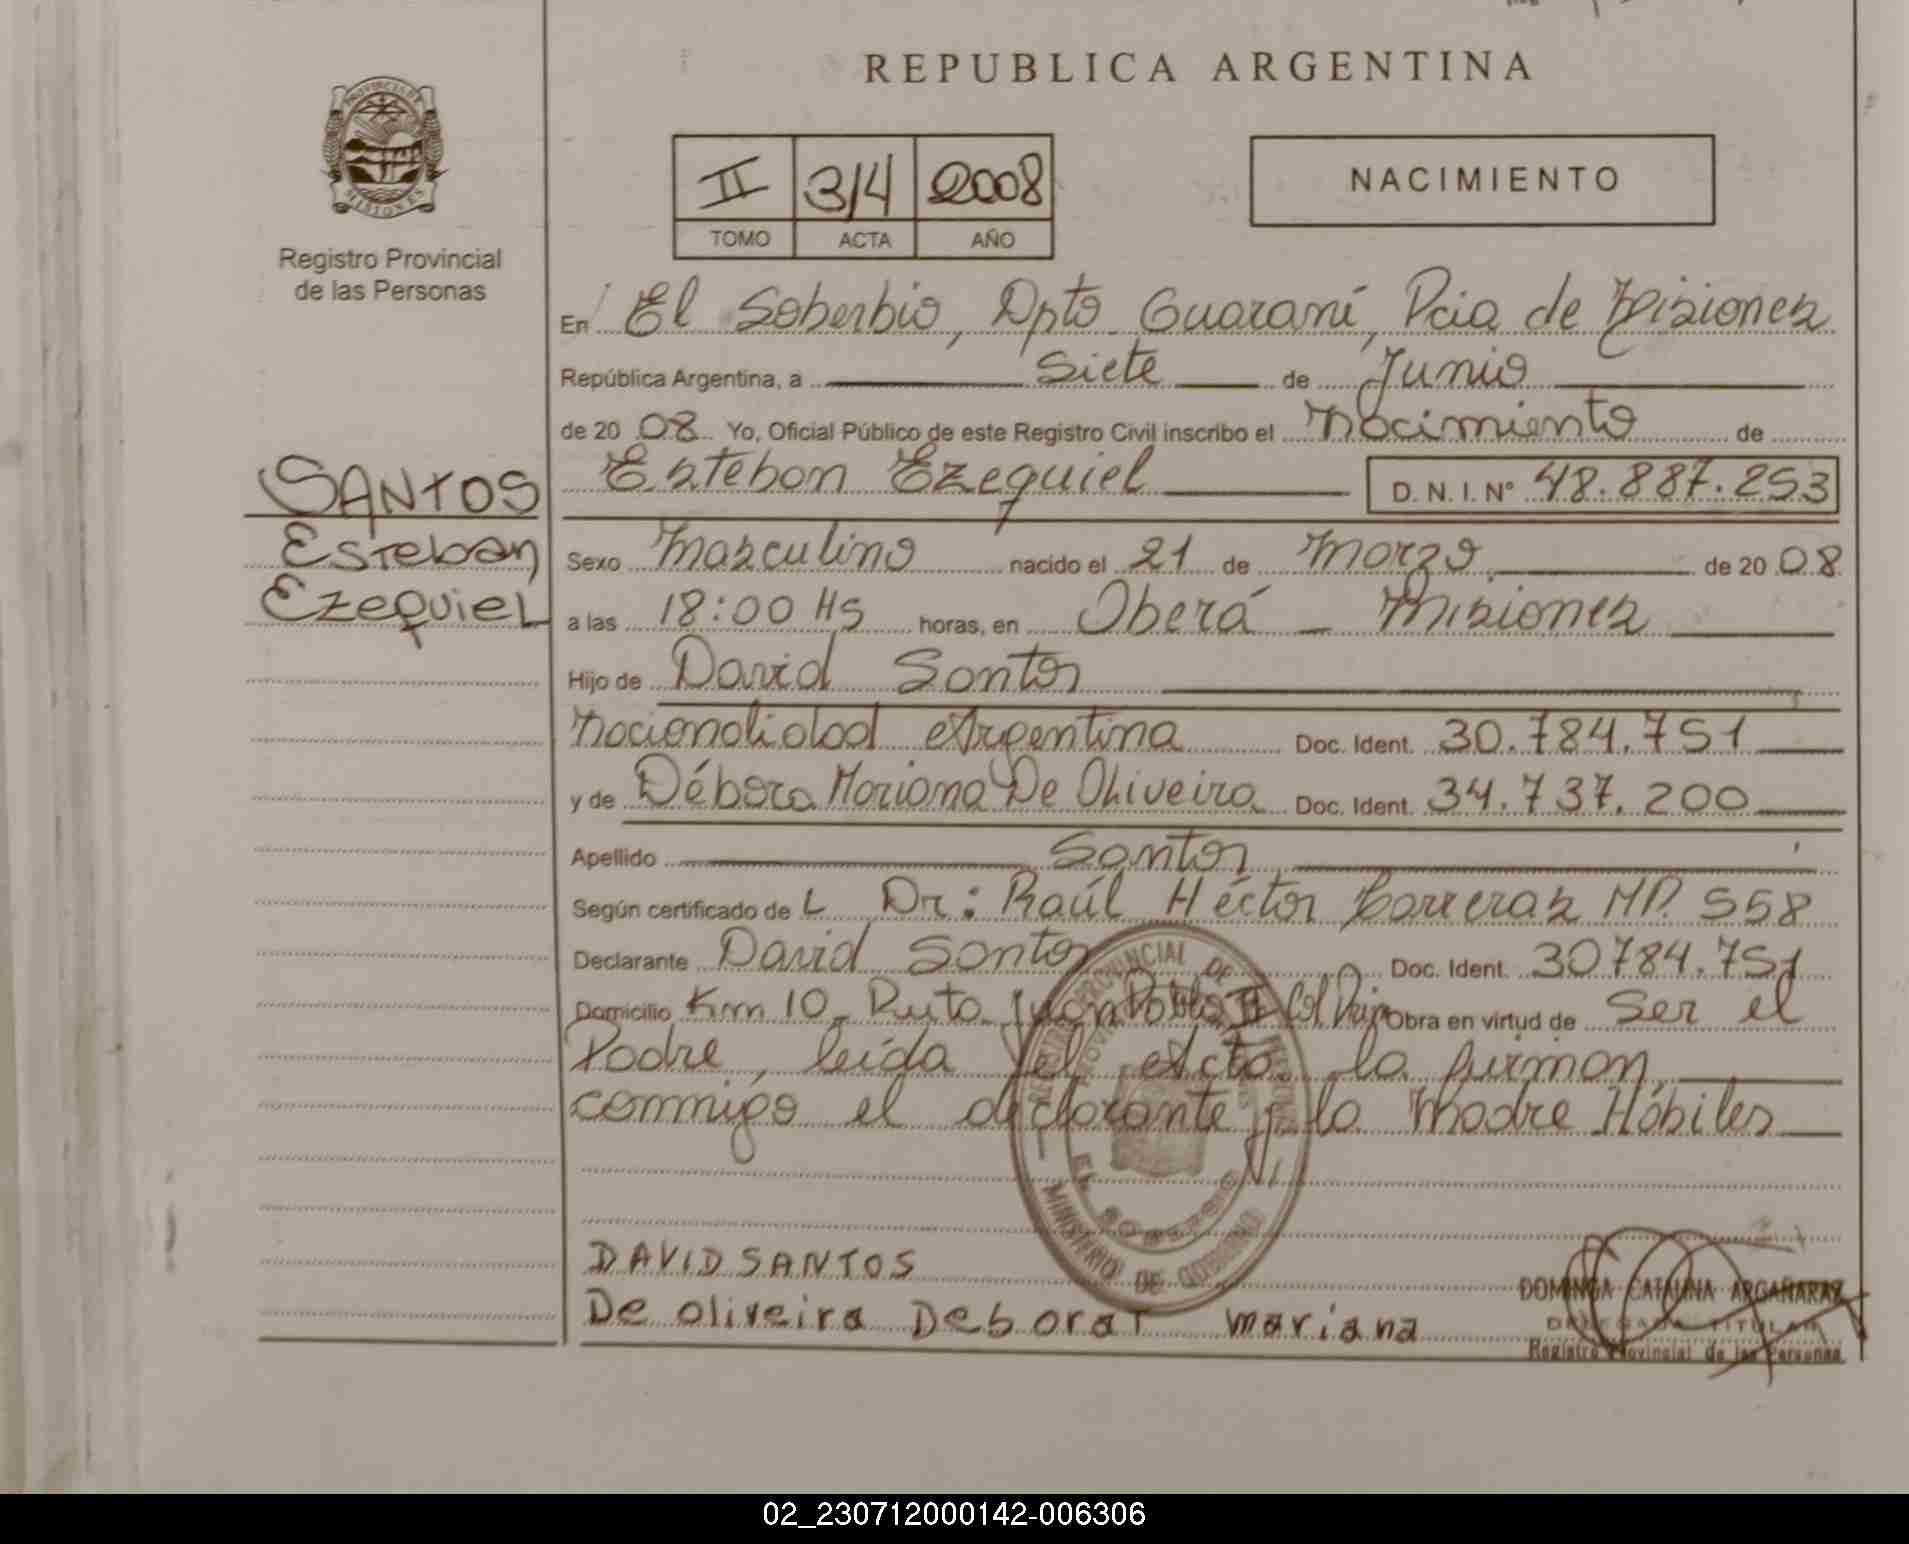 REPUBLICA ARGENTINA
PROVINCIA DE
MISIONES
Registro Provincial
de las Personas
II 314 2008
TOMO ACTA AÑO
NACIMIENTO
En El Soberbio, Dpto Guaraní, Pcia de Misiones
República Argentina, a Siete de Junio
de 2008 Yo, Oficial Público de este Registro Civil inscribo el Nacimiento de
Esteban Ezequiel D. N. I. Nº 48.887.253
SANTOS
Esteban
EzequieL
Sexo Masculino nacido el 21 de Marzo de 2008
a las 18:00 Hs horas, en Oberá - Misiones
Hijo de David Santos
Nacionalidad Argentina Doc. Ident. 30.784.751
y de Débora Mariana De Oliveira Doc. Ident. 34.737.200
Apellido Santos
Según certificado de L Dr: Raúl Héctor Barreras MP. 558
Declarante David Santos Doc. Ident. 30784.751
Domicilio Km 10 - Ruta Juan Pablo II Col Obra en virtud de Ser el
Padre, leída el Acta la firman
conmigo el declarante y la Madre Hábiles
PROVINCIAL DE LAS
EL SOBERBIO
MINISTERIO DE GOBIERNO
DAVID SANTOS
De oliveira Deborat mariana
DOMINGA CATALINA ARGAÑARAZ
DELEGADA TITULAR
Registro Provincial de las Personas
02_230712000142-006306